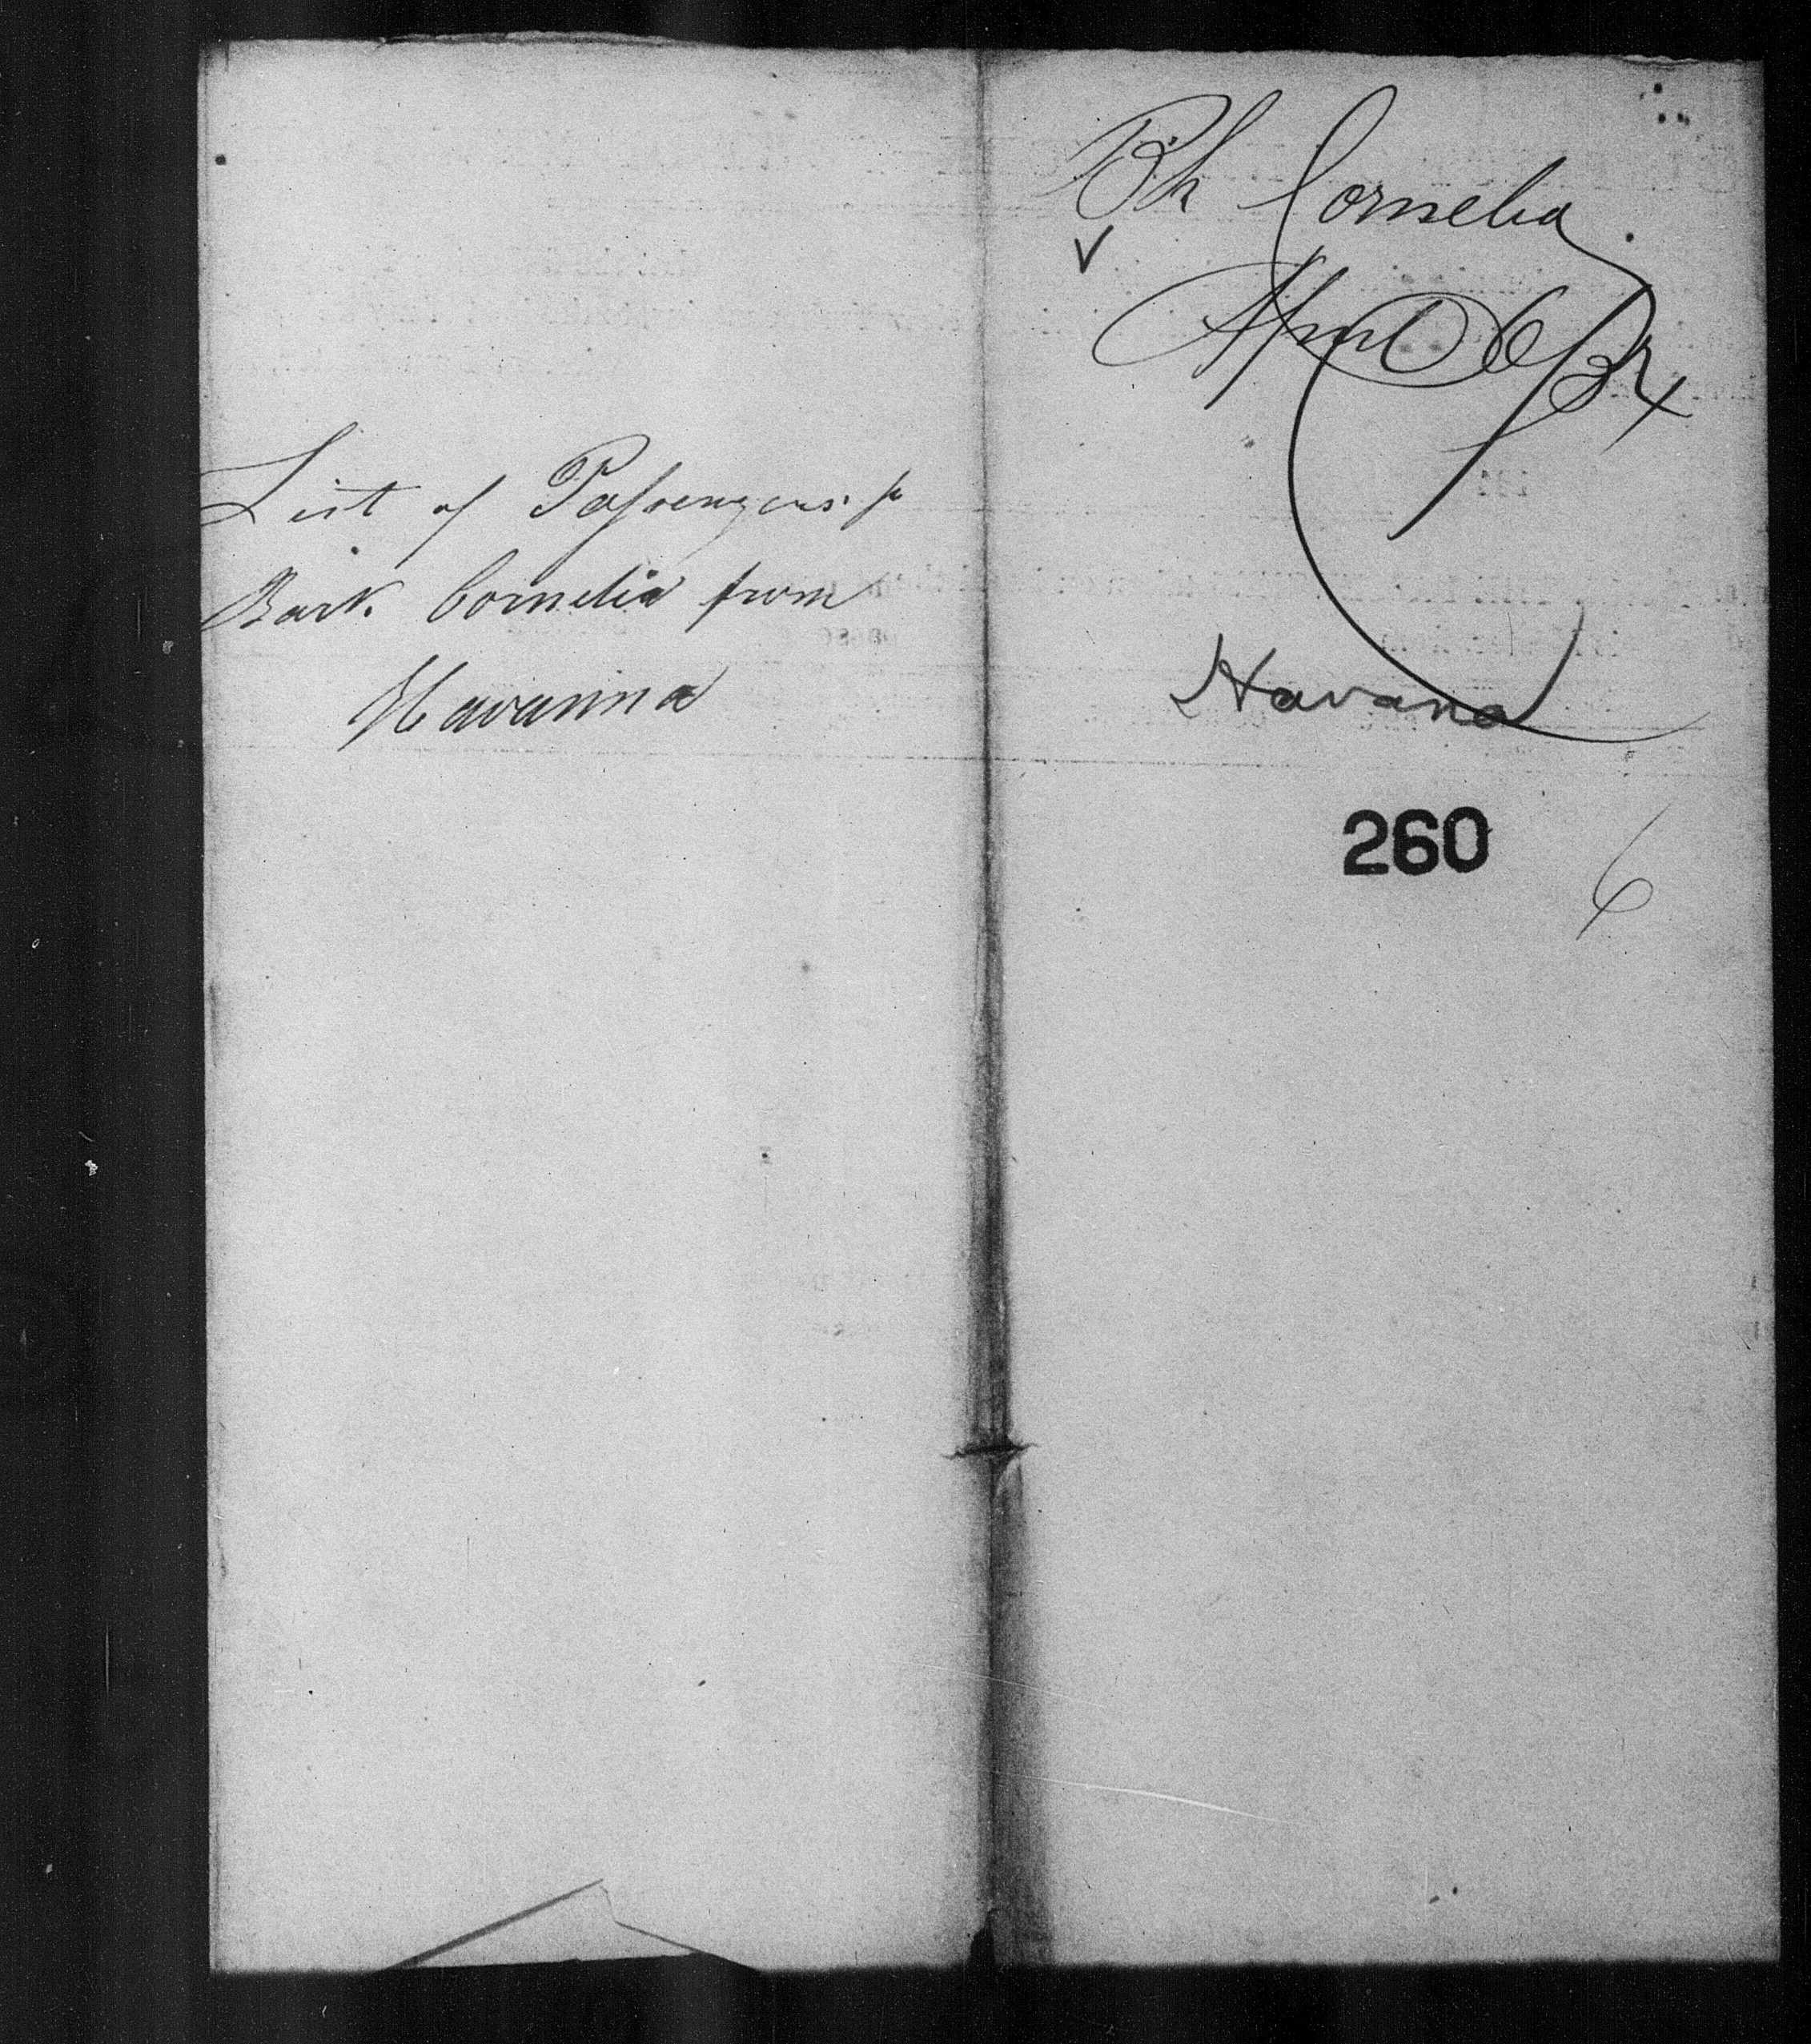 List of Passengers p
Bark Cornelia from
Havanna
Bk Cornelia
April 6/52
Havana
260
6